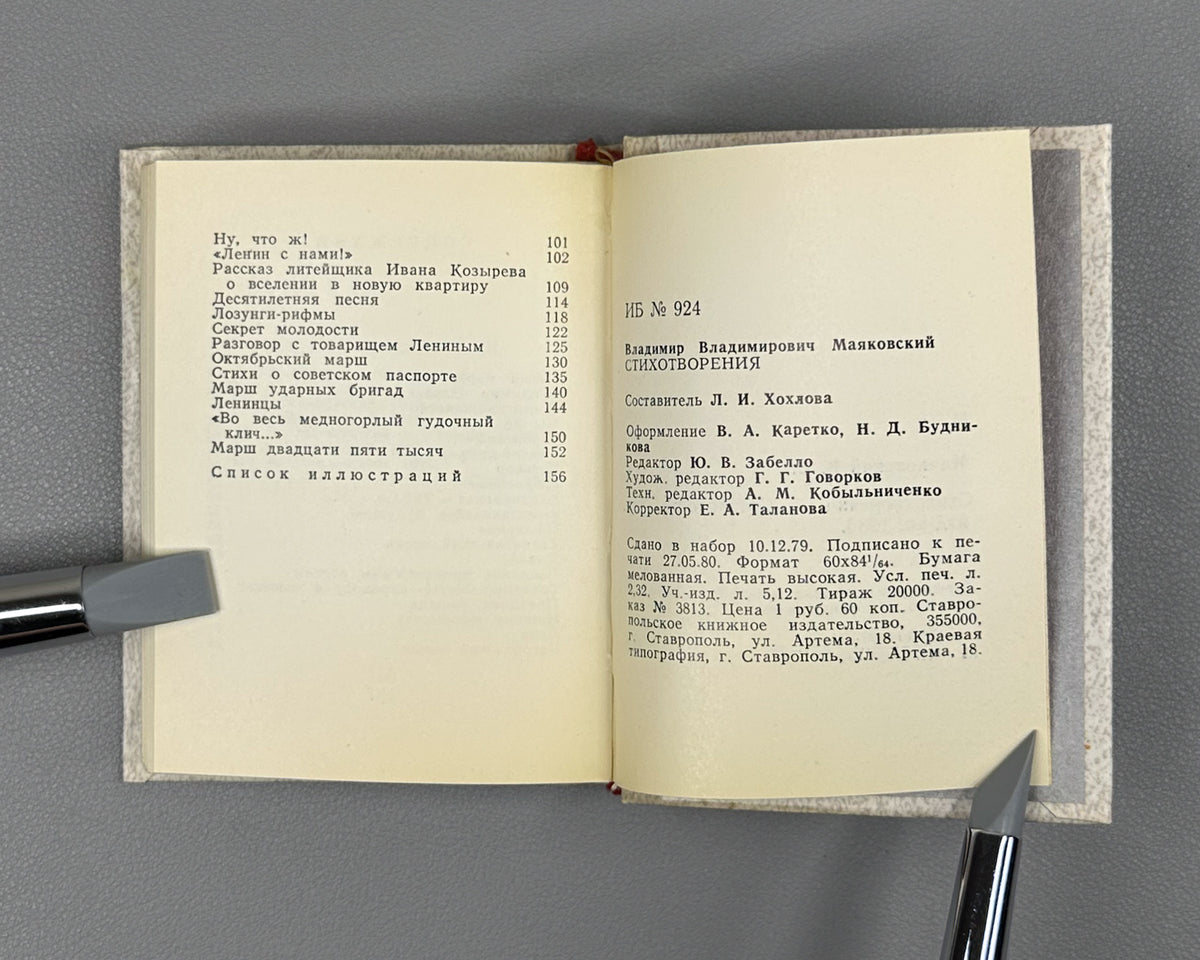 Ну, что ж! 101
«Ленин с нами!» 102
Рассказ литейщика Ивана Козырева
о вселении в новую квартиру 109
Десятилетняя песня 114
Лозунги-рифмы 118
Секрет молодости 122
Разговор с товарищем Лениным 125
Октябрьский марш 130
Стихи о советском паспорте 135
Марш ударных бригад 140
Ленинцы 144
«Во весь медногорлый гудочный
клич...» 150
Марш двадцати пяти тысяч 152
Список иллюстраций 156
ИБ № 924
Владимир Владимирович Маяковский
СТИХОТВОРЕНИЯ
Составитель Л. И. Хохлова
Оформление В. А. Каретко, Н. Д. Будни-
кова
Редактор Ю. В. Забелло
Худож. редактор Г. Г. Говорков
Техн. редактор А. М. Кобыльниченко
Корректор Е. А. Таланова
Сдано в набор 10.12.79. Подписано к пе-
чати 27.05.80. Формат 60х84¹/₆₄. Бумага
мелованная. Печать высокая. Усл. печ. л.
2,32. Уч.-изд. л. 5,12. Тираж 20000. За-
каз № 3813. Цена 1 руб. 60 коп. Ставро-
польское книжное издательство, 355000,
г. Ставрополь, ул. Артема, 18. Краевая
типография, г. Ставрополь, ул. Артема, 18.